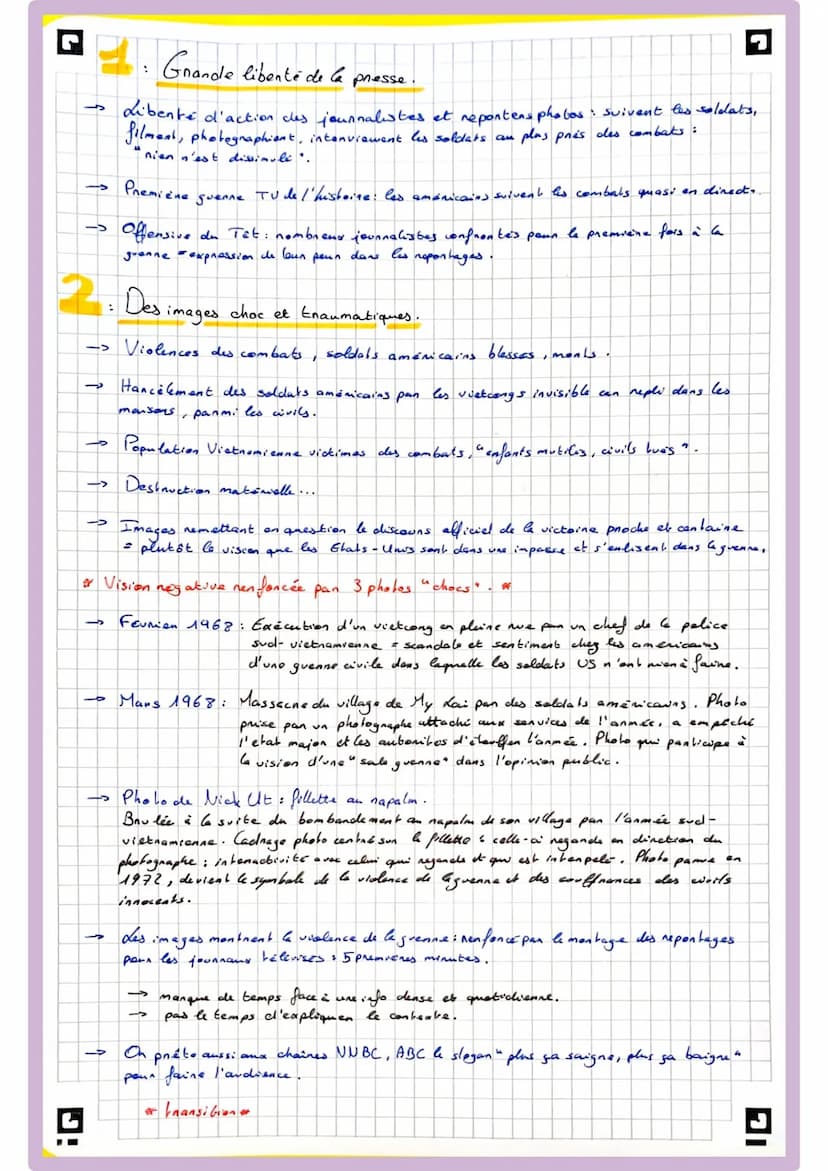 1 : Grande liberté de la presse.
→ Liberté d'action des journalistes et reporters photos : suivent les soldats,
filment, photographient, interviewent les soldats au plus près des combats :
"rien n'est dissimulé".
→ Première guerre TV de l'histoire : les américains suivent les combats quasi en direct.
→ Offensive du Têt : nombreux journalistes confrontés pour la première fois à la
guerre = expression de leur peur dans les reportages.
2 : Des images choc et traumatiques.
→ Violences des combats, soldats américains blessés, morts.
→ Harcèlement des soldats américains par les vietcongs invisible car repli dans les
maisons, parmi les civils.
→ Population Vietnamienne victimes des combats, "enfants mutilés, civils tués".
→ Destruction matérielle...
→ Images remettant en question le discours officiel de la victoire proche et certaine
= plutôt la vision que les Etats-Unis sont dans une impasse et s'enlisent dans la guerre.
* Vision négative renforcée par 3 photos "chocs". *
→ Février 1968 : Exécution d'un vietcong en pleine rue par un chef de la police
sud-vietnamienne = scandale et sentiment chez les américains
d'une guerre civile dans laquelle les soldats US n'ont rien à faire.
→ Mars 1968 : Massacre du village de My Lai par des soldats américains. Photo
prise par un photographe attaché aux services de l'armée, a empêché
l'etat major et les autorités d'étouffer l'armée. Photo qui participe à
la vision d'une "sale guerre" dans l'opinion public.
→ Photo de Nick Ut : fillette au napalm.
Brulée à la suite du bombardement au napalm de son village par l'armée sud-
vietnamienne. Cadrage photo centré sur la fillette : celle-ci regarde en direction du
photographe : interactivité avec celui qui regarde et qui est interpelé. Photo parue en
1972, devient le symbole de la violence de la guerre et des souffrances des civils
innocents.
→ Les images montrent la violence de la guerre : renforcé par le montage des reportages
pour les journaux télévisés : 5 premières minutes.
→ manque de temps face à une info dense et quotidienne.
→ pas le temps d'expliquer le contexte.
→ On prête aussi aux chaînes NNBC, ABC le slogan "plus ça saigne, plus ça baigne"
pour faire l'audience.
* transition *